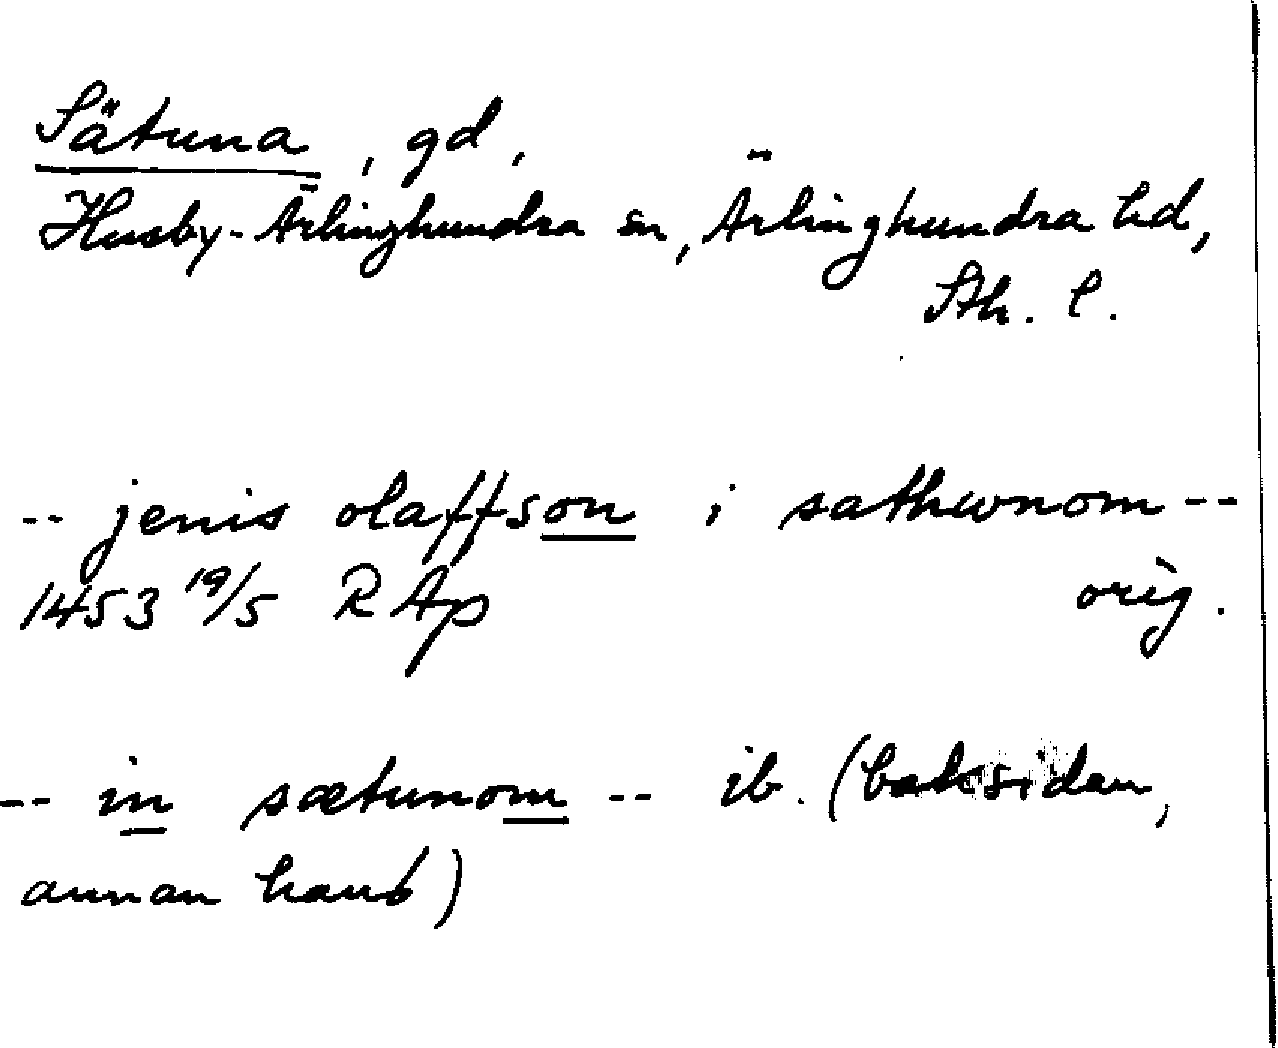 Sätuna, gd,
Husby-Ärlinghundra sn, Ärlinghundra hd,
Sth. l.
-- jenis olaffson i sathwnom --
1453 19/5 RAp orig.
-- in sætunom -- ib. (baksidan,
annan hand)